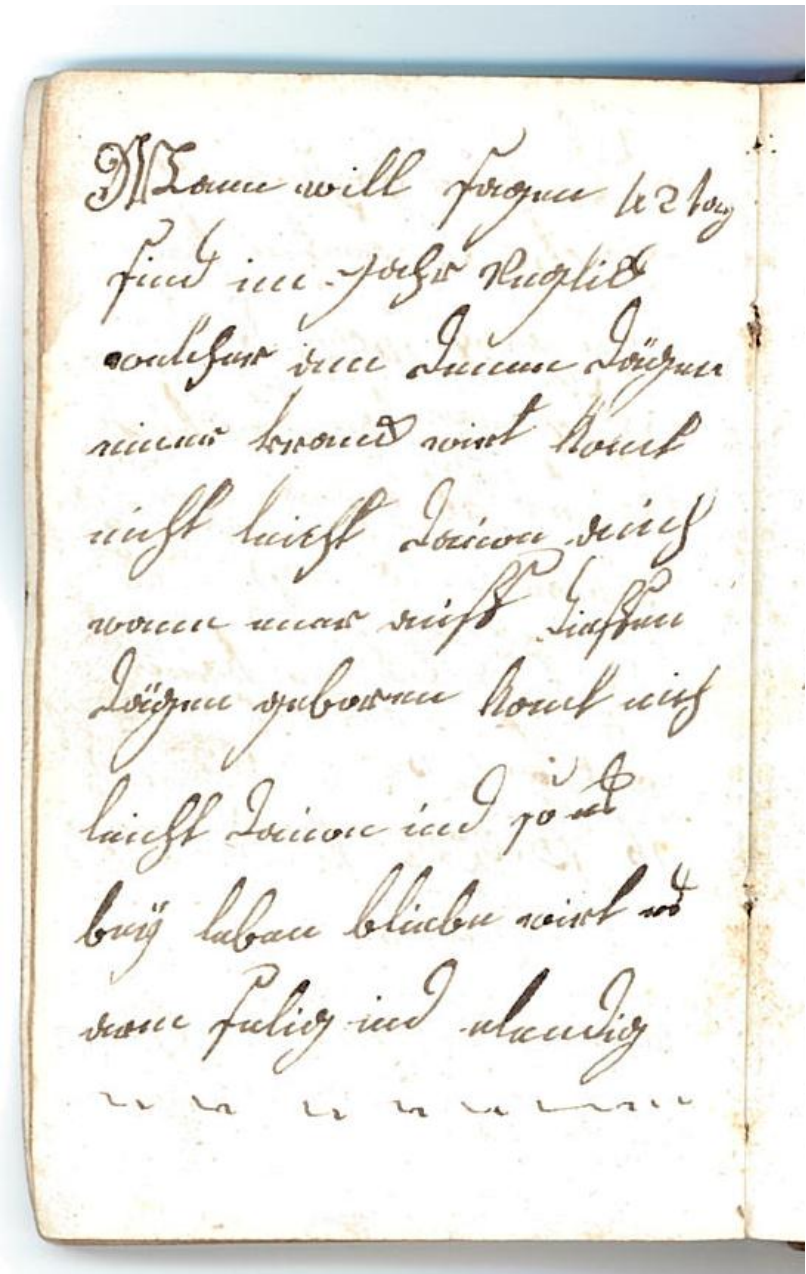 Mann will sagen 42 tag
sind im Jahr Unglick
welcher ann denen Tägen
einer kranck wirt komt
nicht leicht davon auch
wann einer auff diessen
Tägen geboren komt nich
leicht davon und so es
bey leben bliebe wirt es
arm selig und elendig